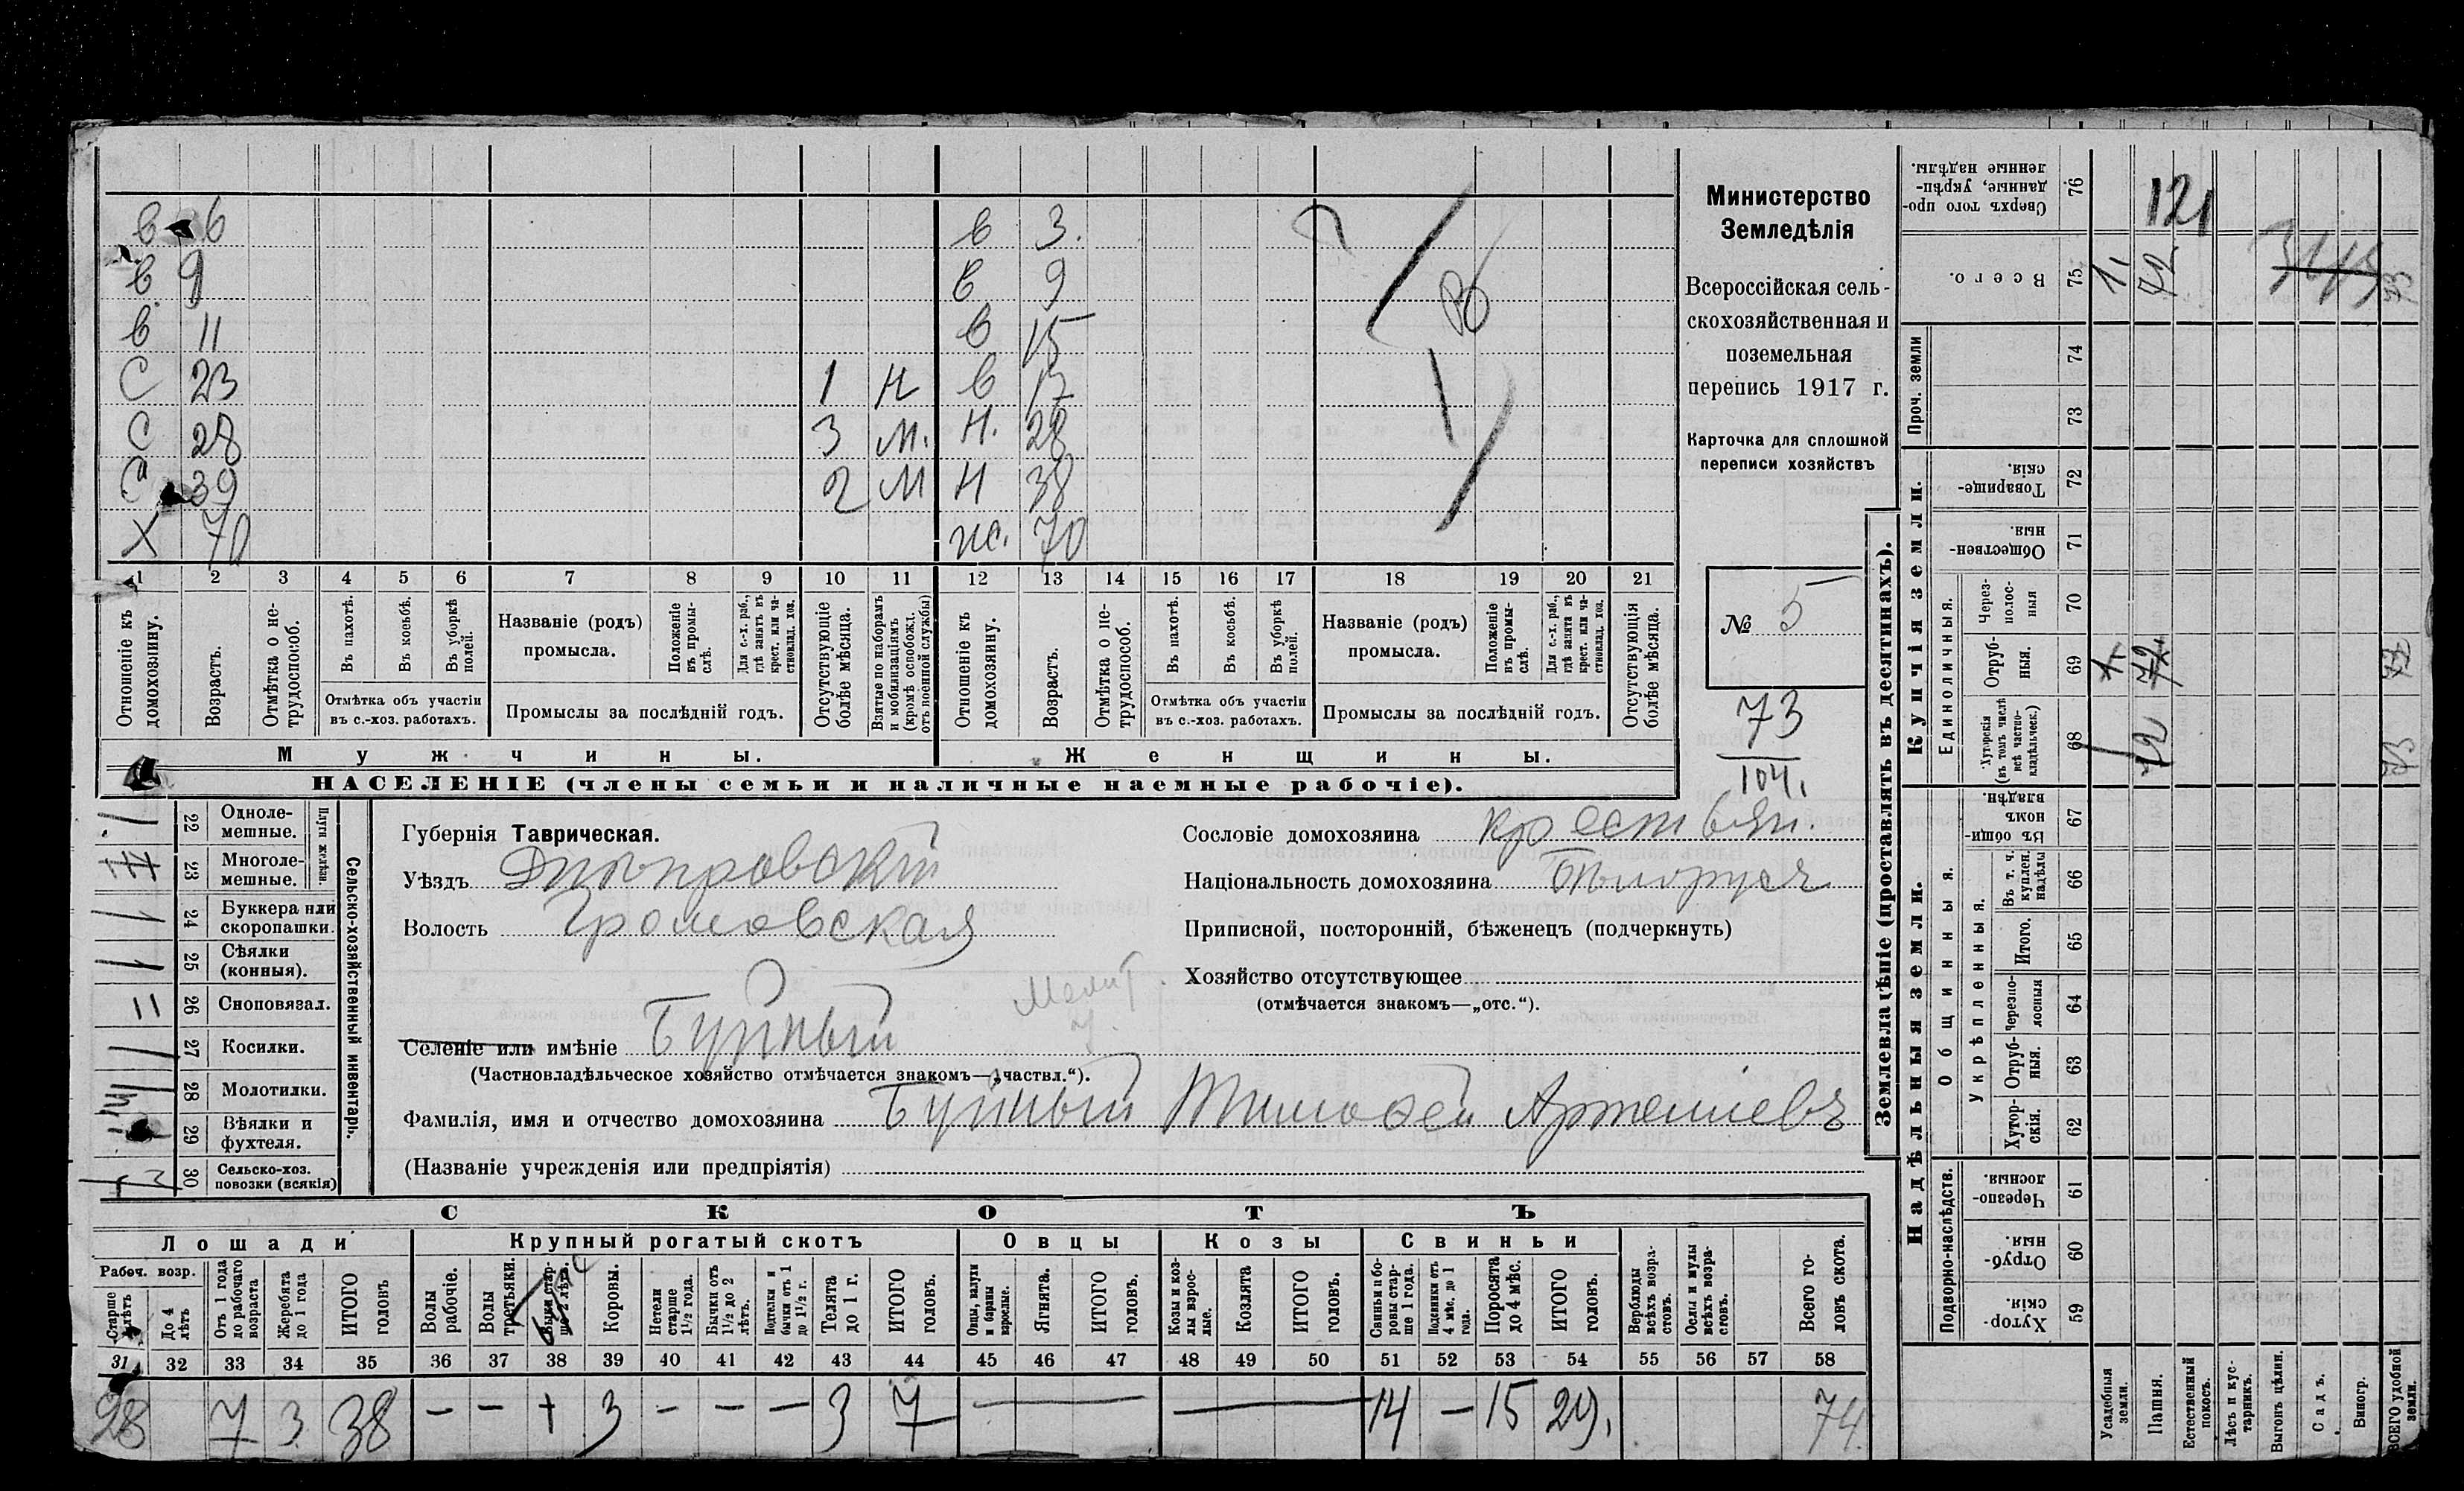 в 6 в 3.
в 9 в 9
в 11 в 15
С 23 1 Н в 17
С 28 3 М. Н. 28
С 39 2 М Н 38
Х 70 70
1 2 3 4 5 6 7 8 9 10 11 12 13 14 15 16 17 18 19 20 21
Отношеніе къ домохозяину.
Возрастъ.
Отмѣтка о не-трудоспособ.
Въ пахотѣ.
Въ косьбѣ.
Въ уборкѣ полей.
Отмѣтка объ участіи въ с.-хоз. работахъ.
Названіе (родъ) промысла.
Положеніе въ промы-слѣ.
Для с.-х. раб., гдѣ занятъ въ крест. или ча-стновлад. хоз.
Промыслы за послѣдній годъ.
Отсутствующіе болѣе мѣсяца.
Взятые по наборамъ и мобилизаціямъ (кромѣ освобожд. отъ военной службы)
Отношеніе къ домохозяину.
Возрастъ.
Отмѣтка о не-трудоспособ.
Въ пахотѣ.
Въ косьбѣ.
Въ уборкѣ полей.
Отмѣтка объ участіи въ с.-хоз. работахъ.
Названіе (родъ) промысла.
Положеніе въ промы-слѣ.
Для с.-х. раб., гдѣ занята въ крест. или ча-стновлад. хоз.
Промыслы за послѣдній годъ.
Отсутствующія болѣе мѣсяца.
Мужчины. Женщины.
НАСЕЛЕНІЕ (члены семьи и наличные наемные рабочіе).
Министерство
Земледѣлія
Всероссійская сель-
скохозяйственная и
поземельная
перепись 1917 г.
Карточка для сплошной
переписи хозяйствъ
№ 5
73
104.
22 Однолемешные.
23 Многолемешные.
Плуги желѣзн.
24 Буккера или скоропашки.
25 Сѣялки (конныя).
26 Сноповязал.
27 Косилки.
28 Молотилки.
29 Вѣялки и фухтеля.
30 Сельско-хоз. повозки (всякія)
Сельско-хозяйственный инвентарь.
Губернія Таврическая.
Уѣздъ Днѣпровскій
Волость Громовская
Мелит.
у.
Селеніе или имѣніе Буйный
(Частновладѣльческое хозяйство отмѣчается знакомъ—„частвл.“).
Фамилія, имя и отчество домохозяина Буйный Тимофей Артеміевъ
(Названіе учрежденія или предпріятія)
Сословіе домохозяина крестьян.
Національность домохозяина Бѣлорусъ
Приписной, посторонній, бѣженецъ (подчеркнуть)
Хозяйство отсутствующее
(отмѣчается знакомъ—„отс.“).
СКОТЪ
Лошади Крупный рогатый скотъ Овцы Козы Свиньи
Рабоч. возр.
Старше лѣтъ
До 4 лѣтъ
Отъ 1 года до рабочаго возраста
Жеребята до 1 года
ИТОГО головъ
Волы рабочіе.
Волы третьяки.
Быки старше 2 лѣтъ.
Коровы.
Нетели старше 1½ года.
Бычки отъ 1½ до 2 лѣтъ.
Подтелки и бычки отъ 1 до 1½ г.
Телята до 1 г.
ИТОГО головъ.
Овцы, валухи и бараны взрослые.
Ягнята.
ИТОГО головъ.
Козы и козлы взрослые.
Козлята
ИТОГО головъ.
Свиньи и боровы старше 1 года.
Подсвинки отъ 4 мѣс. до 1 года.
Поросята до 4 мѣс.
ИТОГО головъ.
Верблюды всѣхъ возрастовъ.
Ослы и мулы всѣхъ возрастовъ.
Всего головъ скота.
31 32 33 34 35 36 37 38 39 40 41 42 43 44 45 46 47 48 49 50 51 52 53 54 55 56 57 58
28 7 3 38 — — + 3 — — — 3 7 — — 14 — 15 29. 74.
Землевладѣніе (проставлять въ десятинахъ).
Купчія земли.
Надѣльныя земли.
Единоличныя.
Общинныя.
Укрѣпленныя.
Подворно-наслѣдств.
Проч. земли
76 Сверхъ того проданные, укрѣпленные надѣлы.
75 Всего.
74
73
72 Товарищескія.
71 Общественныя
70 Черезполосныя
69 Отрубныя.
68 Хуторскія (въ томъ числѣ всѣ частновладѣльческ.)
67 Въ общинномъ владѣн.
66 Въ т. ч. куплен. надѣлы
65 Итого.
64 Черезполосныя
63 Отрубныя.
62 Хуторскія.
61 Черезполосныя.
60 Отрубныя.
59 Хуторскія
Усадебныя земли.
Пашня.
Естественный покосъ.
Лѣсъ и кустарникъ.
Выгонъ цѣлин.
Садъ.
Виногр.
ВСЕГО удобной земли.
121